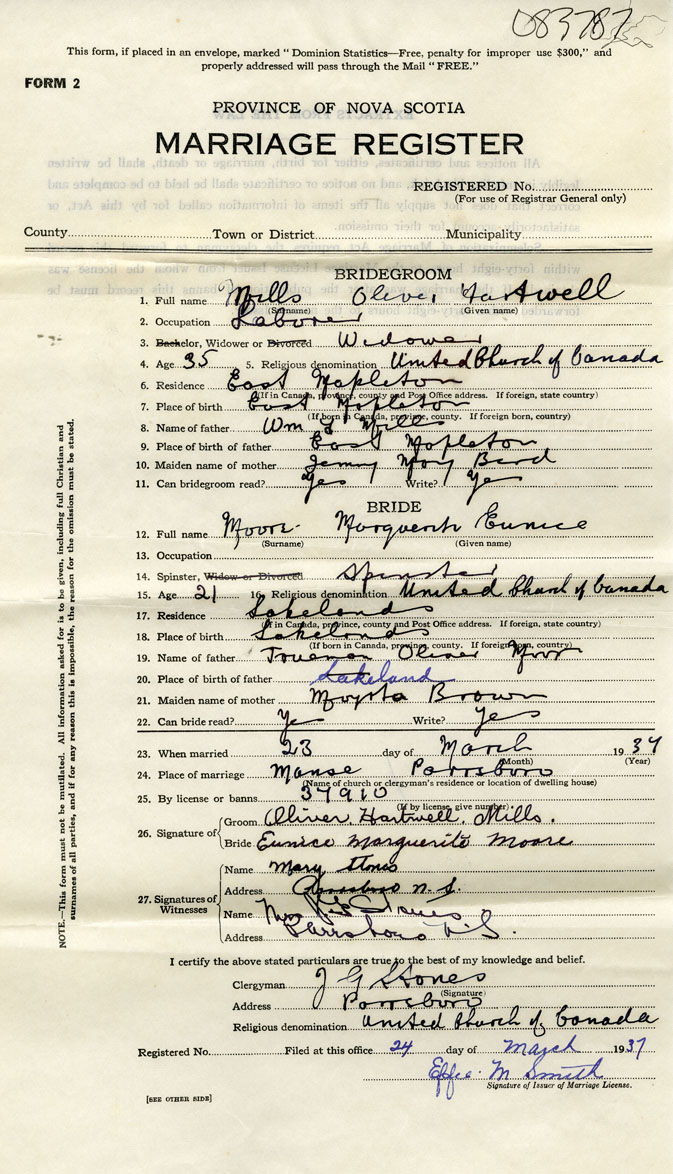 083787
This form, if placed in an envelope, marked "Dominion Statistics—Free, penalty for improper use $300," and
properly addressed will pass through the Mail "FREE."
FORM 2
PROVINCE OF NOVA SCOTIA
MARRIAGE REGISTER
REGISTERED No.
(For use of Registrar General only)
County Town or District Municipality
BRIDEGROOM
1. Full name Mills Oliver Hartwell
(Surname) (Given name)
2. Occupation Laborer
3. Bachelor, Widower or Divorced Widower
4. Age 35 5. Religious denomination United Church of Canada
6. Residence East Mapleton
(If in Canada, province, county and Post Office address. If foreign, state country)
7. Place of birth East Mapleton
(If born in Canada, province, county. If foreign born, country)
8. Name of father Wm Mills
9. Place of birth of father East Mapleton
10. Maiden name of mother Jenny May
11. Can bridegroom read? Yes Write? Yes
BRIDE
12. Full name Moore Marguerite Eunice
(Surname) (Given name)
13. Occupation
14. Spinster, Widow or Divorced Spinster
15. Age 21 16. Religious denomination United Church of Canada
17. Residence Lakelands
(If in Canada, province, county and Post Office address. If foreign, state country)
18. Place of birth Lakelands
(If born in Canada, province, county. If foreign born, country)
19. Name of father Trueman Oliver Moor
20. Place of birth of father Lakeland
21. Maiden name of mother Brown
22. Can bride read? Yes Write? Yes
23. When married 23 day of March 1937
(Month) (Year)
24. Place of marriage Manse Parrsboro
(Name of church or clergyman's residence or location of dwelling house)
25. By license or banns 37910
(If by license, give number)
26. Signature of Groom Oliver Hartwell Mills.
Bride Eunice Marguerite Moore
27. Signatures of Witnesses
Name Mary Stones
Address Parrsboro N.S.
Name Mrs Stones
Address Parrsboro N.S.
I certify the above stated particulars are true to the best of my knowledge and belief.
Clergyman J G Stones
(Signature)
Address Parrsboro
Religious denomination United Church of Canada
Registered No. Filed at this office 24 day of March 1937
Effie M Smith
Signature of Issuer of Marriage License.
[SEE OTHER SIDE]
NOTE.—This form must not be mutilated. All information asked for is to be given, including full Christian and
surnames of all parties, and if for any reason this is impossible, the reason for the omission must be stated.